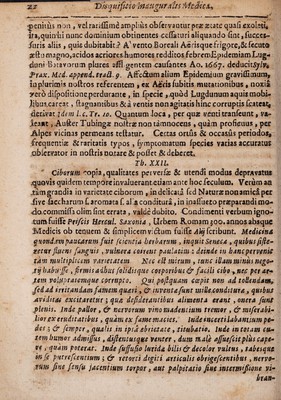 22 Disquisitio Inauguralis Medica,
penitus non, vel rarissimè amplius observantur præ ætate quali exoleti,
ita, qui hi nunc dominium obtinentes cessaturi aliquando sint, succes-
suris aliis, quis dubitabit? A' vento Boreali Aërisque frigore, & secuto
æstu magno, acidos acriores humores redditos febrem Epidem Lug-
duni Batavorum plures affligentem causantes Ao. 1667. deducit Sylv.
Prax. Med. append. tract. 9. Affectum alium Epidemium gravissimum,
in plurimis nostros referentem, ex Aëris subitis mutationibus, noxia
verò dispositione perdurante, in specie, quòd Lugdunum aquis mobi-
libus careat, stagnantibus & à ventis non agitatis hinc corruptis scateat,
derivat idem l. c. Tr. 10. Quantum loca, per quæ venti transeunt, va-
leant, Auster Tubingæ nostræ non tàm nocens, quàm proficuus, per
Alpes vicinas permeans testatur. Certas ortûs & occasûs periodos,
frequentiæ & raritatis typos, symptomatum species varias accuratus
observator in nostris notare & posset & deberet.
Th. XXII.
Ciborum copia, qualitates perversæ & utendi modus depravatus
quovis quidem tempore invaluerant etiam ante hoc seculum. Verùm an
tàm grandis in varietate ciborum, in delicatâ sed Naturæ non amica per
sive saccharum s. aromata s. alia conditurâ, in insassueto præparandi mo-
do commissi olim sint errata, valdè dubito. Condimenti verbum igno-
tum fuisse Persis Herul. Saxonia, Urbem Romam 500. annos absque
Medicis ob tenuem & simplicem victum fuisse Alii scribunt. Medicina
quondam paucarum fuit scientia herbarum, inquit Seneca, quibus siste-
retur fluens sanguis, vulnera coirent paulatim; deinde in hanc pervenit
tam multiplicem varietatem. Nec est mirum, tunc illam minus nego-
tij habuisse, firmis adhuc solidisque corporibus & facili cibo, nec per ar-
tem voluptatemque corrupto. Qui postquam cœpit non ad tollendam,
sed ad irritandam famem quæri, & inventæ sunt mille conditura, quibus
aviditas excitaretur; quæ desiderantibus alimenta erant, onera sunt
plenis. Inde pallor, & nervorum vino madentium tremor, & miserabi-
lior ex cruditatibus, quàm ex fame macies. Inde incerti labantium pe-
des; & semper, qualis in ipsa ebrietate, titubatio. Inde in totam cu-
tem humor admissus, distentusque venter, dum malè assuescit plus cape-
re, quàm poterat. Inde suffusio lurida bilis & decolor vultus, tabesque
in se putrescentium; & retorti digiti articulis obrigescentibus, nervo-
rum sine sensu jacentium torpor, aut palpitatio sine intermissione vi-
bran-